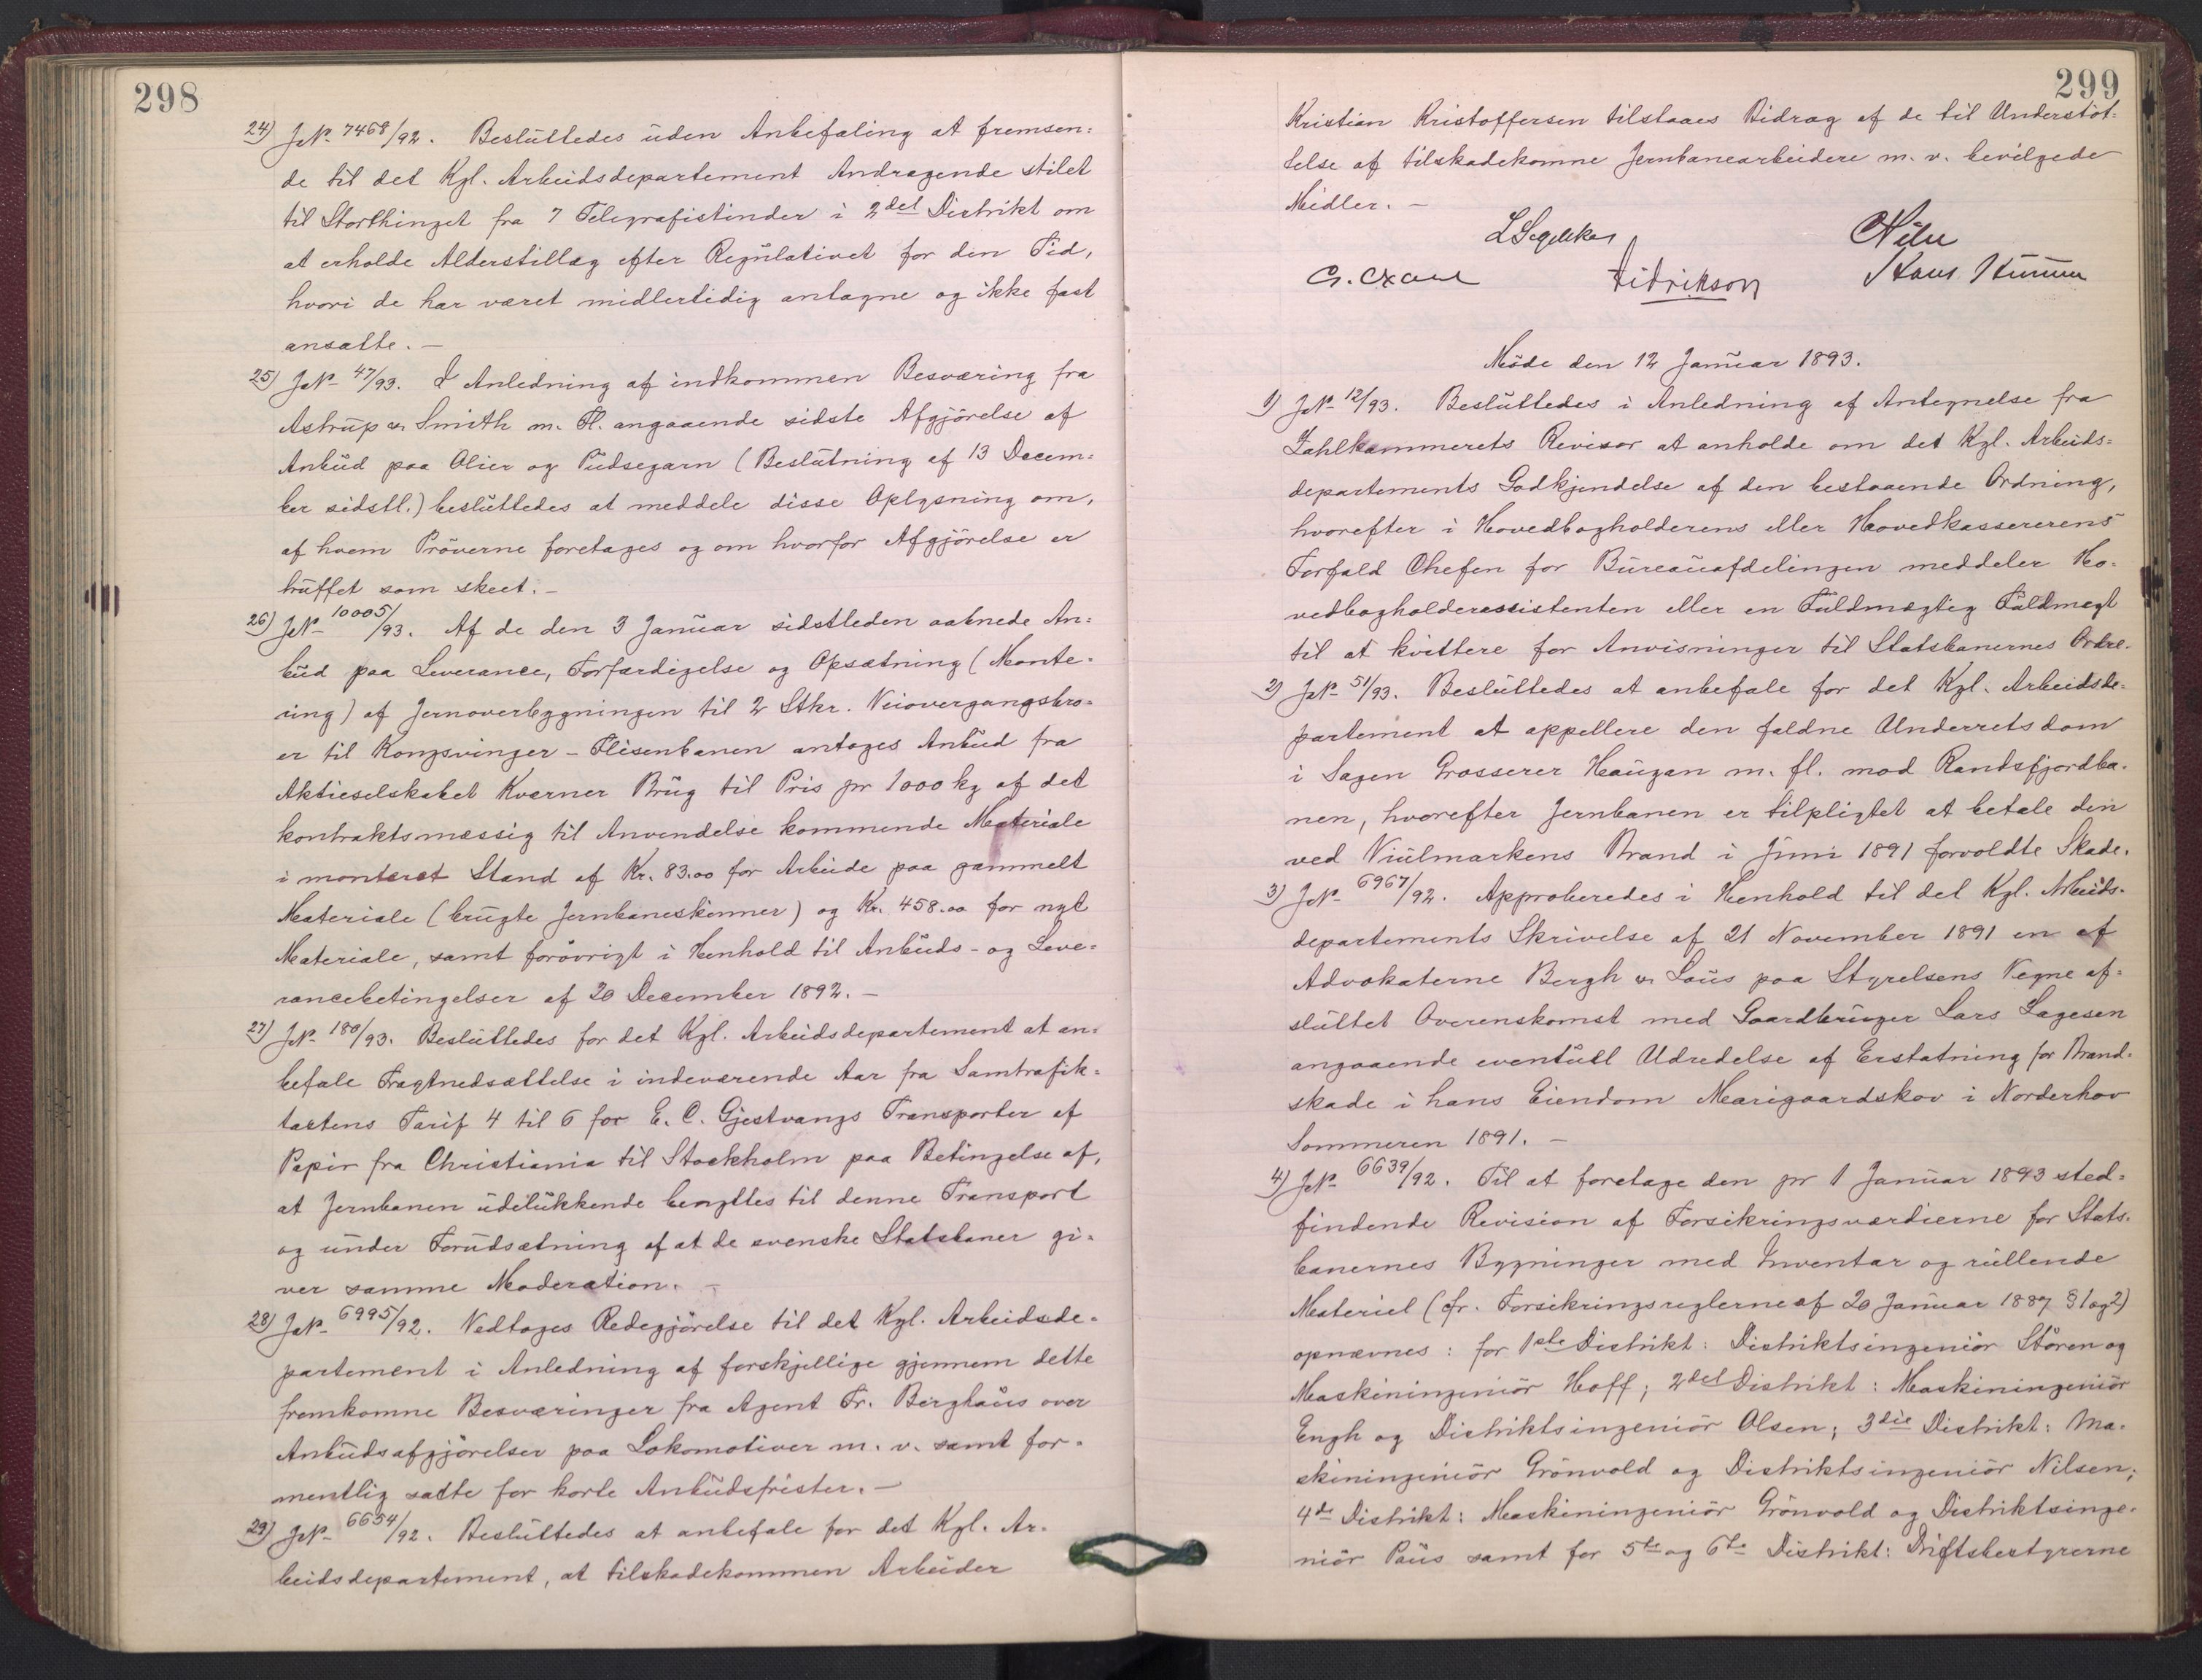 298
24) JN. 7468/92. Besluttedes uden Anbefaling at fremsen=
de til det Kgl. Arbeidsdepartement Andragende stilet
til Storthinget fra 7 Telegrafistinder i 2det Distrikt om
at erholde Alderstillæg efter Regulativet for den Tid,
hvori de har været midlertidig antagne og ikke fast
ansatte. —
25) JN. 47/93. I Anledning af indkommen Besværing fra
Astrup & Smith m. Fl. angaaende sidste Afgjörelse af
Anbud paa Olier og Pudsegarn (Beslutning af 13 Decem=
ber sidstl.) besluttedes at meddele disse Oplysning om,
af hvem Pröverne foretages og om hvorfor Afgjörelse er
truffet som skeet. —
26) JN. 10005/93. Af de den 3 Januar sidstleden aabnede An=
bud paa Leverance, Forfærdigelse og Opsætning (Monte=
ring) af Jernoverbygningen til 2 Stkr. Veiovergangsbro=
er til Kongsvinger - Flisenbanen antages Anbud fra
Aktieselskabet Kværner Brug til Pris pr 1000 kg af det
kontraktsmæssig til Anvendelse kommende Materiale
i monteret Stand af Kr. 83.00 for Arbeide paa gammelt
Materiale (brugte Jernbaneskinner) og Kr. 458.00 for nyt
Materiale, samt forövrigt i Henhold til Anbuds- og Leve=
rancebetingelser af 20 December 1892. —
27) JN. 180/93. Besluttedes for det Kgl. Arbeidsdepartement at an=
befale Fragtnedsættelse i indeværende Aar fra Samtrafik=
taxtens Tarif 4 til 6 for E. C. Gjestvangs Transporter af
Papir fra Christiania til Stockholm paa Betingelse af,
at Jernbanen udelukkende benyttes til denne Transport
og under Forudsætning af at de svenske Statsbaner gi=
ver samme Moderation. —
28) JN. 6995/92. Vedtoges Redegjörelse til det Kgl. Arbeidsde=
partement i Anledning af forskjellige gjennem dette
fremkomne Besværinger fra Agent Fr. Berghaus over
Anbudsafgjörelser paa Lokomotiver m. v. samt for=
mentlig satte for korte Anbudsfrister. —
29) JN. 6654/92. Besluttedes at anbefale for det Kgl. Ar=
beidsdepartement, at tilskadekommen Arbeider
299
Kristian Kristoffersen tilstaaes Bidrag af de til Understöt=
telse af tilskadekomne Jernbanearbeidere m. v. bevilgede
Midler. —
Didrikson
Möde den 12 Januar 1893.
1) JN. 12/93. Besluttedes i Anledning af Antegnelse fra
Zahlkammerets Revisor at anholde om det Kgl. Arbeids=
departements Godkjendelse af den bestaaende Ordning,
hvorefter i Hovedbogholderens eller Hovedkassererens
Forfald Chefen for Bureauafdelingen meddeler Ho=
vedbogholderassistenten eller en Fuldmægtig Fuldmagt
til at kvittere for Anvisninger til Statsbanernes Ordre.
2) JN. 51/93. Besluttedes at anbefale for det Kgl. Arbeidsde=
partement at appellere den faldne Underretsdom
i Sagen Grosserer Haugan m. fl. mod Randsfjordba=
nen, hvorefter Jernbanen er tilpligtet at betale den
ved Viulmarkens Brand i Juni 1891 forvoldte Skade.
3) JN. 6967/92. Approberedes i Henhold til det Kgl. Arbeids=
departements Skrivelse af 21 November 1891 en af
Advokaterne Bergh & Lous paa Styrelsens Vegne af=
sluttet Overenskomst med Gaardbruger Lars Lagesen
angaaende eventuel Udredelse af Erstatning for Brand=
skade i hans Eiendom Marigaardskov i Norderhov
Sommeren 1891. —
4) JN. 6639/92. Til at foretage den pr 1 Januar 1893 sted=
findende Revision af Forsikringsværdierne for Stats=
banernes Bygninger med Inventar og rullende
Materiel (cfr. Forsikringsreglerne af 20 Januar 1887 § 1 og 2)
opnævnes: for 1ste Distrikt: Distriktsingeniör Stören og
Maskiningeniör Hoff; 2det Distrikt: Maskiningeniör
Engh og Distriktsingeniör Olsen; 3die Distrikt: Ma=
skiningeniör Grönvold og Distriktsingeniör Nilsen;
4de Distrikt: Maskiningeniör Grönvold og Distriktsinge=
niör Paus samt for 5te og 6te Distrikt: Driftsbestyrerne